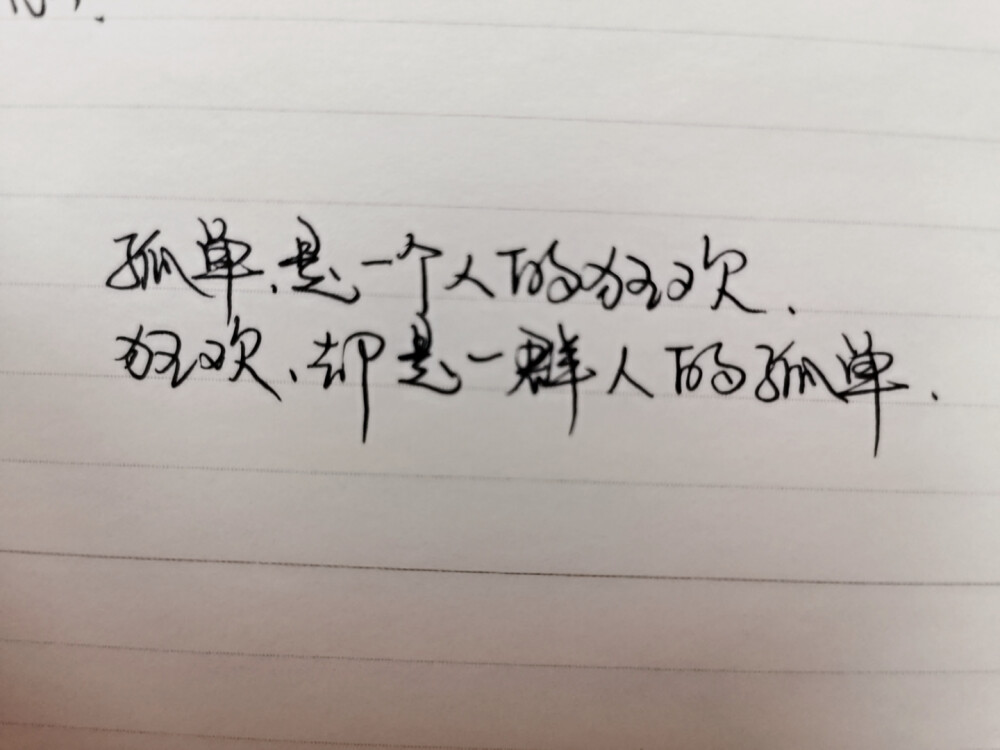 孤单、是一个人的狂欢.
狂欢、却是一群人的孤单.